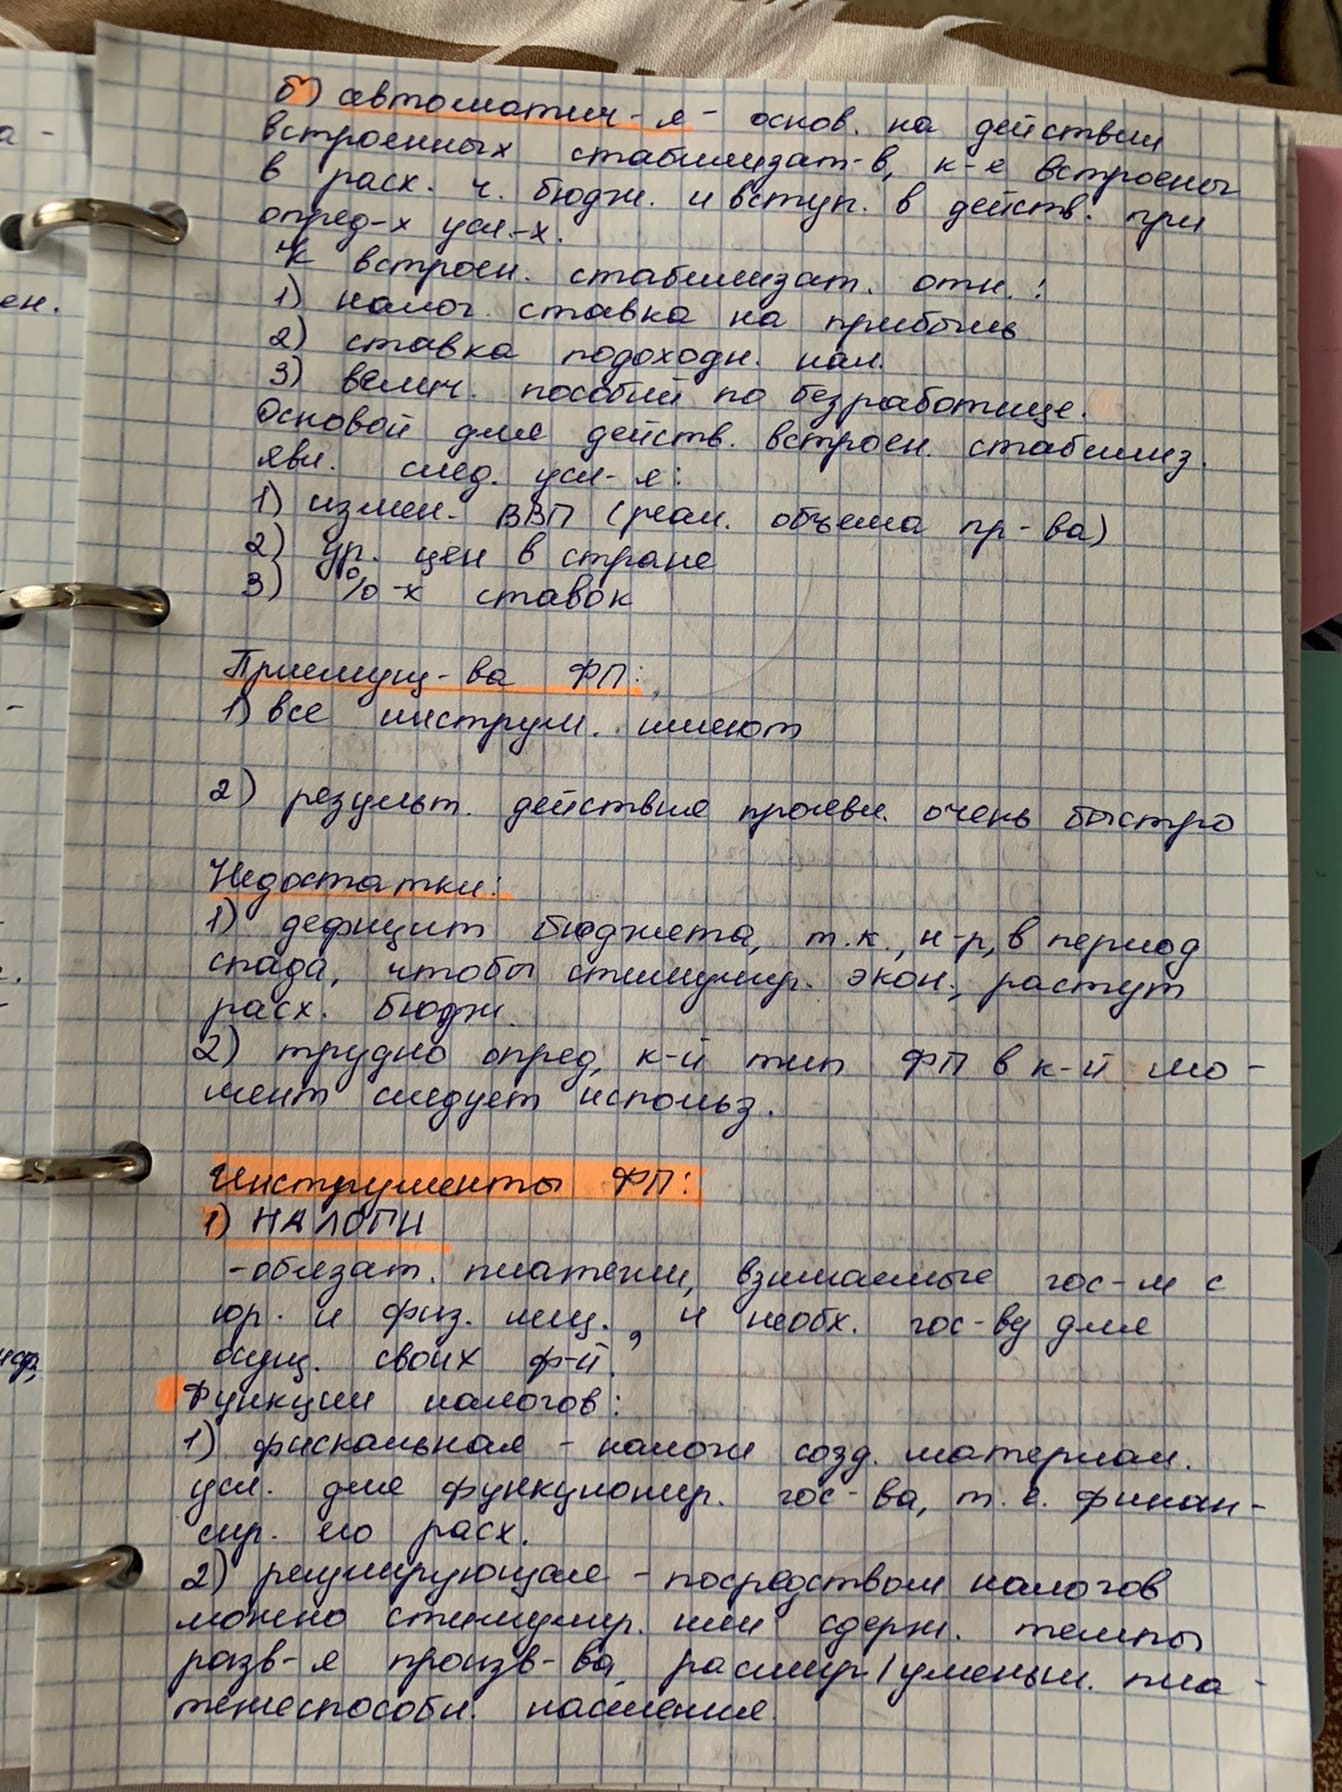 б) автоматич-я - основ. на действии
встроенных стабилизат-в, к-е встроены
в расх. ч. бюдж. и вступ. в действ. при
опред-х усл-х.
К встроен. стабилизат. отн.:
1) налог. ставка на прибыль
2) ставка подоходн. нал.
3) велич. пособий по безработице.
Основой для действ. встроен. стабилиз.
явл. след. усл-я:
1) измен. ВВП (реал. объема пр-ва)
2) ур. цен в стране
3) %-х ставок
Преимущ-ва ФП:
1) все инструм. имеют
2) результ. действия проявл. очень быстро
Недостатки:
1) дефицит бюджета, т.к., н-р, в период
спада, чтобы стимулир. экон., растут
расх. бюдж.
2) трудно опред, к-й тип ФП в к-й мо-
мент следует использ.
Инструменты ФП:
1) НАЛОГИ
-обязат. платежи, взимаемые гос-м с
юр. и физ. лиц., и необх. гос-ву для
осущ. своих ф-й.
Функции налогов:
1) фискальная - налоги созд. материал.
усл. для функционир. гос-ва, т.е. финан-
сир. его расх.
2) регулирующая - посредством налогов
можно стимулир. или сдерж. темпы
разв-я произв-ва, расшир/уменьш. пла-
тежеспособн. населения.
а-
ен.